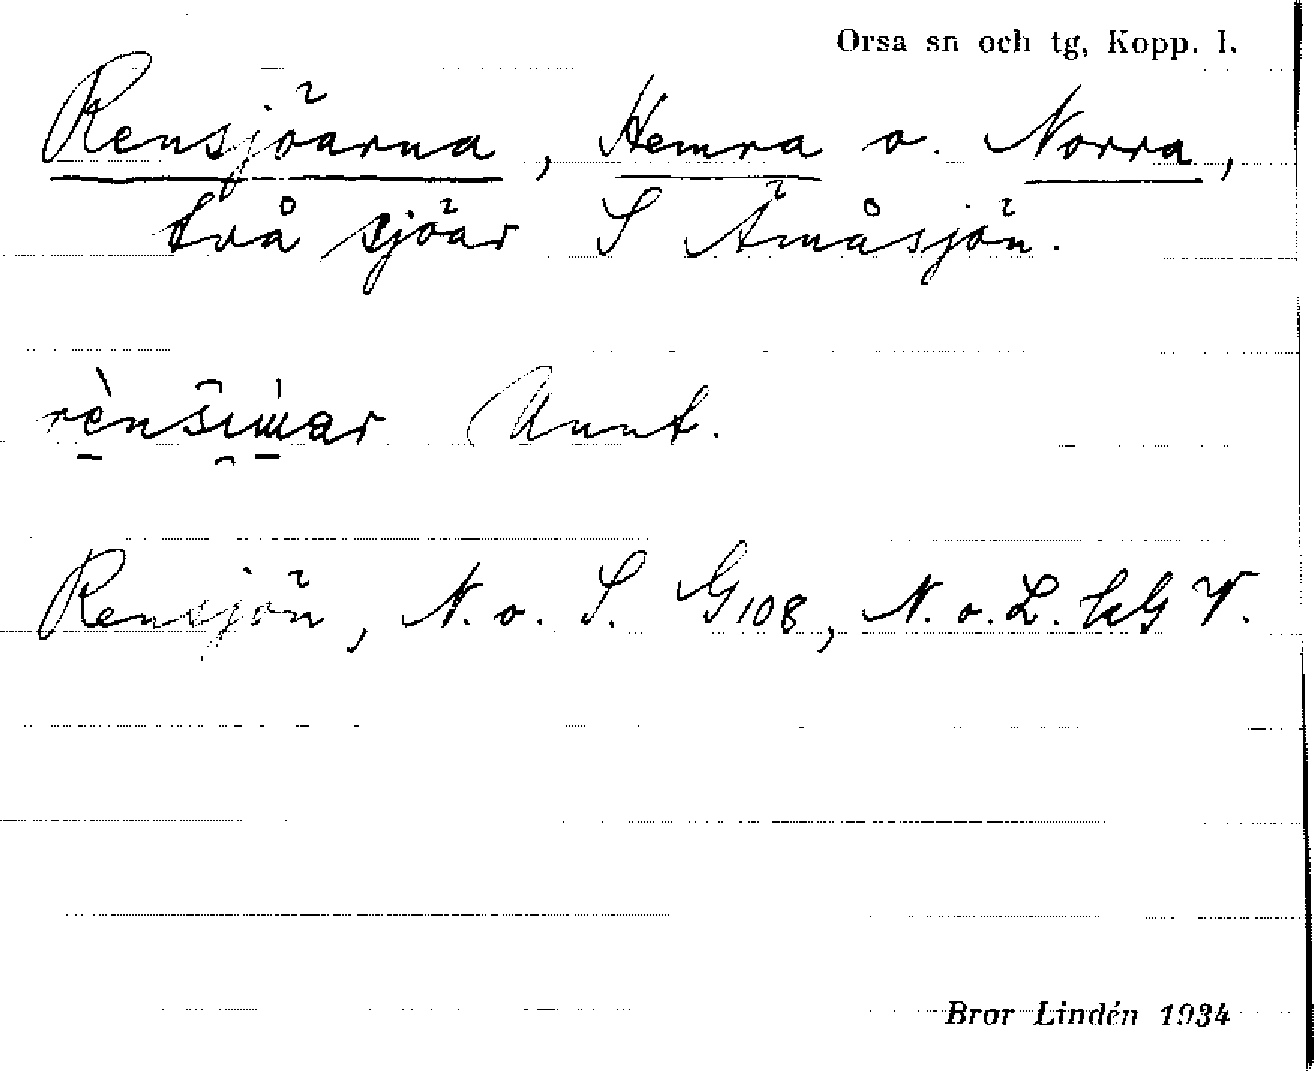 Orsa sn och tg, Kopp. l.
Rensjöarna, Hemra o. Norra,
två sjöar S Ämåsjön.
Rensjön, N. o. S. G108, N. o. L. kG V.
Bror Lindén 1934